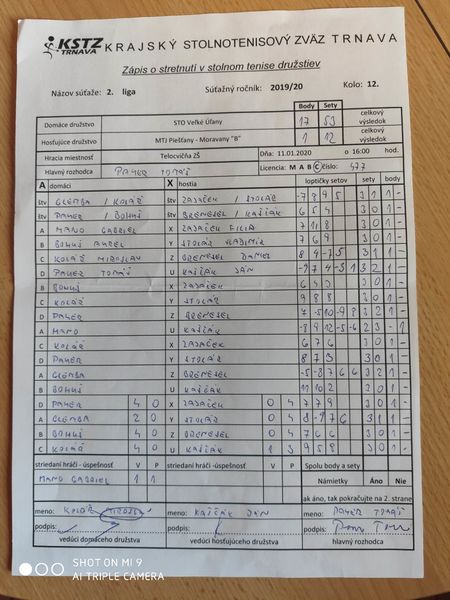 KSTZ TRNAVA KRAJSKÝ STOLNOTENISOVÝ ZVÄZ TRNAVA
Zápis o stretnutí v stolnom tenise družstiev
Názov súťaže: 2. liga Súťažný ročník: 2019/20 Kolo: 12.
Body Sety
Domáce družstvo STO Veľké Úľany 17 53 celkový výsledok
Hosťujúce družstvo MTJ Piešťany - Moravany "B" 1 12 celkový výsledok
Hracia miestnosť Telocvičňa ZŠ Dňa: 11.01.2020 o 16:00 hod.
Hlavný rozhodca PAYER TOMÁŠ Licencia: M A B C číslo: 477
A domáci X hostia loptičky setov sety body
štv GLEMBA / KOLÁŘ štv ZAJAČEK / STOLÁR -7 8 9 5 3 1 1 -
štv PAYER / BOHUŠ štv BRENESEL / KAŠČÁK 6 5 4 3 0 1 -
A MANO GABRIEL X ZAJAČEK FILIP 7 11 8 3 0 1 -
B BOHUŠ Y STOLÁR VLADIMÍR 7 6 9 3 0 1 -
C KOLÁŘ MIROSLAV Z BRENESEL DANIEL 8 9 -7 5 3 1 1 -
D PAYER TOMÁŠ U KAŠČÁK JÁN -9 7 4 -5 1 3 2 1 -
B BOHUŠ X ZAJAČEK 3 0 1 -
C KOLÁŘ Y STOLÁR 9 8 8 3 0 1 -
D PAYER Z BRENESEL 7 -5 10 -9 8 3 2 1 -
A MANO U KAŠČÁK -8 9 12 -5 -6 2 3 - 1
C KOLÁŘ X ZAJAČEK 6 7 6 3 0 1 -
D PAYER Y STOLÁR 8 7 3 3 0 1 -
A GLEMBA Z BRENESEL -5 -8 7 6 6 3 2 1 -
B BOHUŠ U KAŠČÁK 11 10 2 3 0 1 -
D PAYER 4 0 X ZAJAČEK 0 4 7 7 9 3 0 1 -
A GLEMBA 2 0 Y STOLÁR 0 4 8 -9 7 6 3 1 1 -
B BOHUŠ 4 0 Z BRENESEL 0 4 7 6 6 3 0 1 -
C KOLÁŘ 4 0 U KAŠČÁK 1 3 9 5 8 3 0 1 -
striedaní hráči - úspešnosť V P striedaní hráči - úspešnosť V P Spolu body a sety
MANO GABRIEL 1 1 Námietky Áno Nie
ak áno, tak pokračujte na 2. strane
meno: KOLÁŘ MIROSLAV meno: KAŠČÁK JÁN meno: PAYER TOMÁŠ
podpis: podpis: podpis:
vedúci domáceho družstva vedúci hosťujúceho družstva hlavný rozhodca
SHOT ON MI 9
AI TRIPLE CAMERA